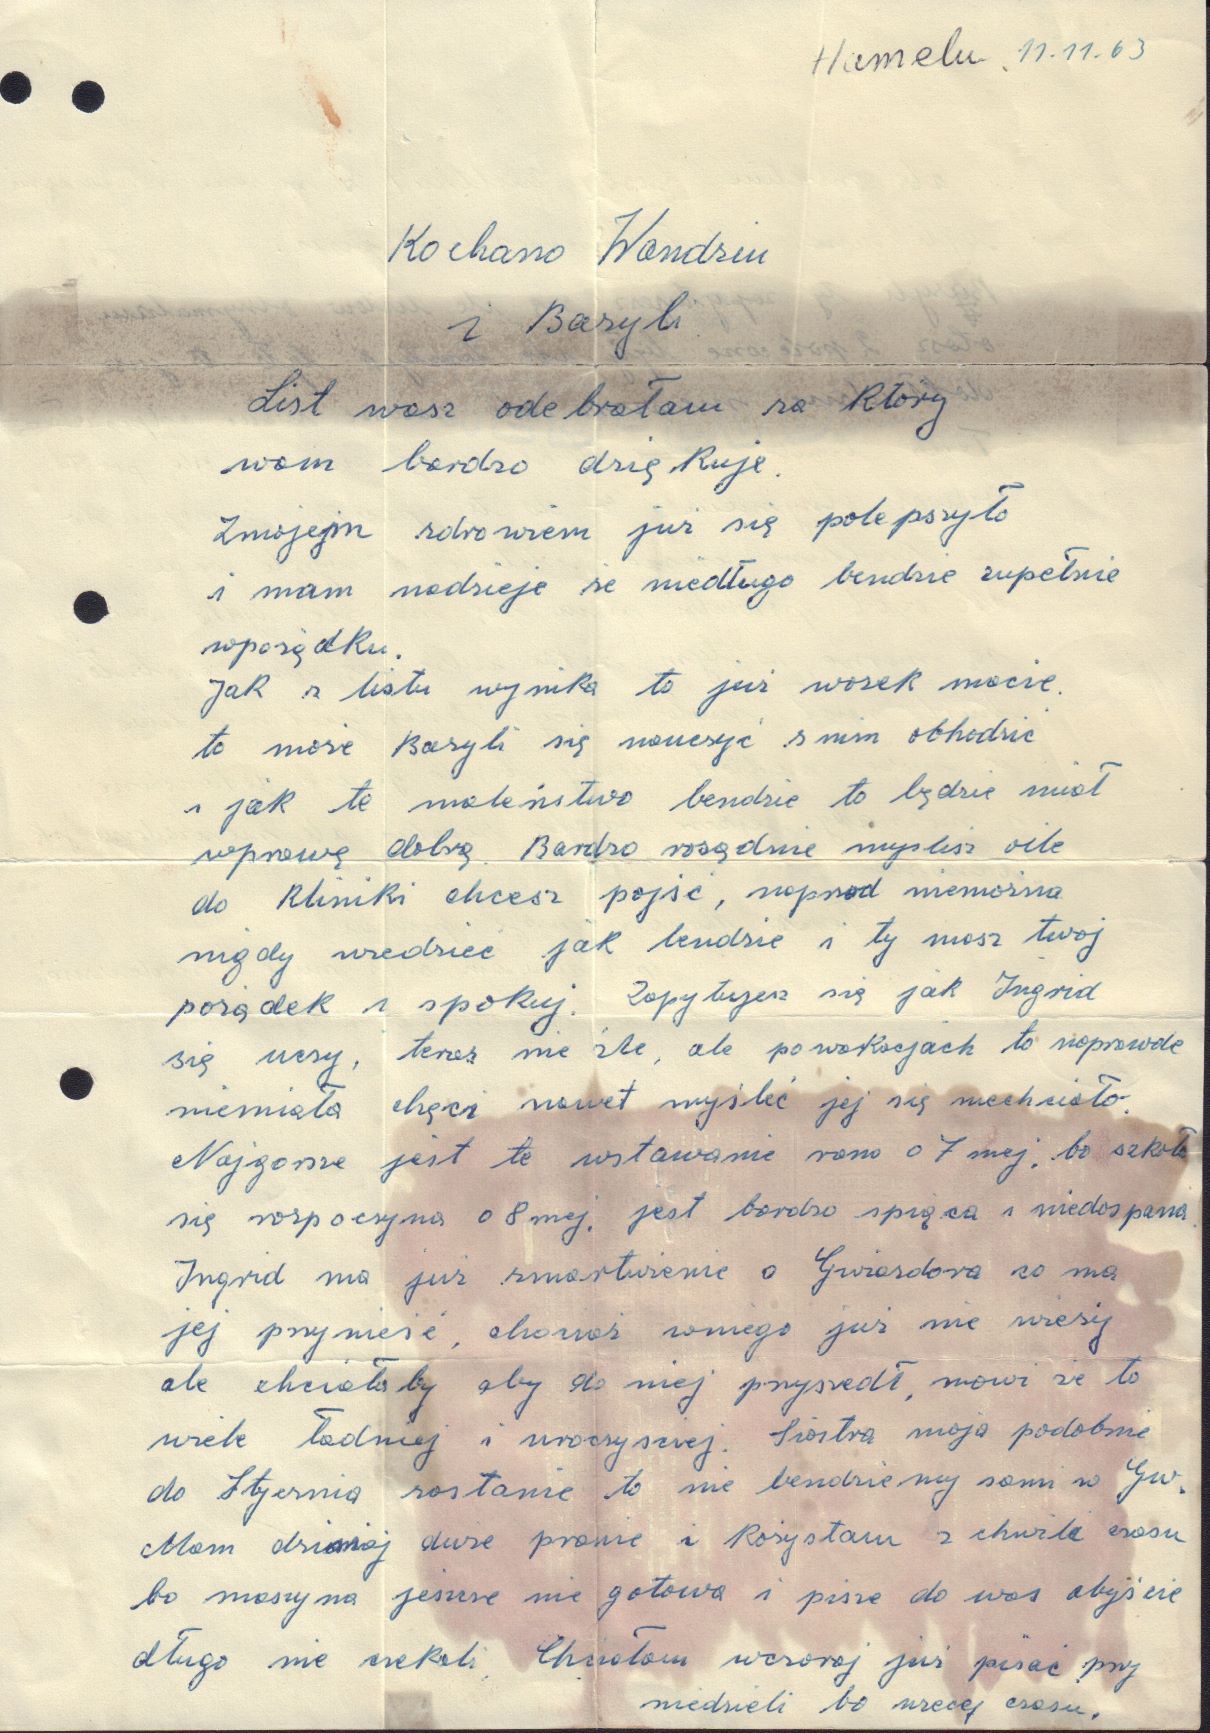 Hameln 11.11.63
Kochano Wandziu
i Bazyli
List wasz odebrałam za Ktory
wam bardzo dzięKuje.
Zmojejm zdrowiem już się polepszyło
i mam nadzieje że niedługo bendzie zupełnie
wporządKu.
Jak z listu wynika to już wozek macie.
to może Bazyli się nauczyć z nim obhodzić
i jak te maleństwo bendzie to będzie miał
wprawę dobrą. Bardzo rosądnie myslisz oile
do Kliniki chcesz pojść, naprzod niemożna
nigdy wiedzieć jak bendzie i ty masz twoj
porządek i spokuj. Zapytujesz się jak Ingrid
się uczy, teraz nie źle, ale powakacjach to naprawde
niemiała chęci nawet myśleć jej się niechciało.
Najgorsze jest te wstawanie rano o 7 mej, bo szkoła
się rozpoczyna o 8 mej, jest bardzo spiąca i niedospana.
Ingrid ma już zmartwienie o Gwiazdora co ma
jej przynieść, chociaż wniego już nie wieży
ale chciałaby aby do niej przyszedł, mowi że to
wiele ładniej i uroczysciej. Siostra moja podobnie
do Stycznia zostanie to nie bendziemy sami w Gw.
Mam dzisiaj duże pranie i Kożystam z chwili czasu
bo maszyna jeszcze nie gotowa i pisze do was abyście
długo nie czekali. Chciałam wczoraj już pisać przy
niedzieli bo wiecej czasu.